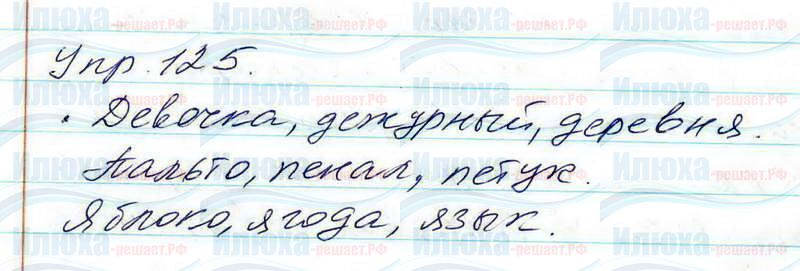 Упр. 125.
. Девочка, дежурный, деревня.
Пальто, пенал, петух.
Яблоко, ягода, язык.